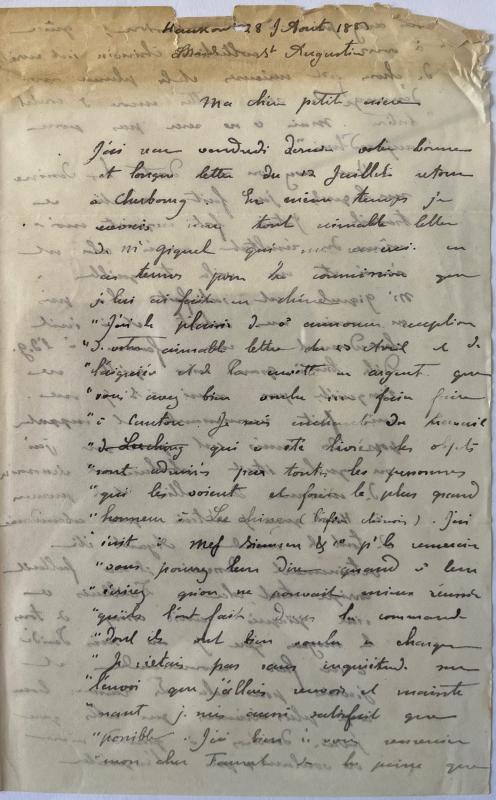 Hankow 28 Août 188
St Augustin
Ma chère petite mère
J'ai reçu vendredi dernier votre bonne
et longue lettre du 12 Juillet retour
à Cherbourg. En même temps je
recevais une tout aimable lettre
de Mr Giquel qui me
temps pour la commission que
je lui ai faite en
"J'ai le plaisir de vs annoncer reception
"de votre aimable lettre du 23 Avril et de
" et de la en argent que
"vous avez bien voulu me faire faire
"à Canton. Je suis enchanté du travail
"de Lee Ching qui a été livré, les objets
"sont admirés par toutes les personnes
"qui les voient et font le plus grand
"honneur à Lee Ching (l'orfèvre chinois). J'ai
"écrit à Mrs Siemssen & Co pr les remercier
"vous pouvez leur dire quand à leur
"écrirez qu'on ne pouvait mieux réussir
"qu'ils l'ont fait dans la commande
"dont ils ont bien voulu se charger
"Je n'étais pas sans inquiétude sur
"l'envoi que j'allais recevoir et mainte
"nant je suis aussi satisfait que
"possible. J'ai bien à vous remercier
"mon cher de la peine que